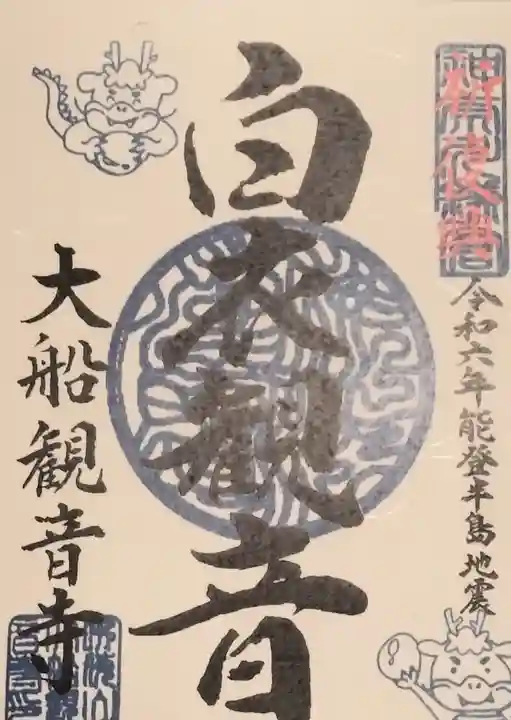 祈復興
令和六年能登半島地震
白衣観音
大船観音寺